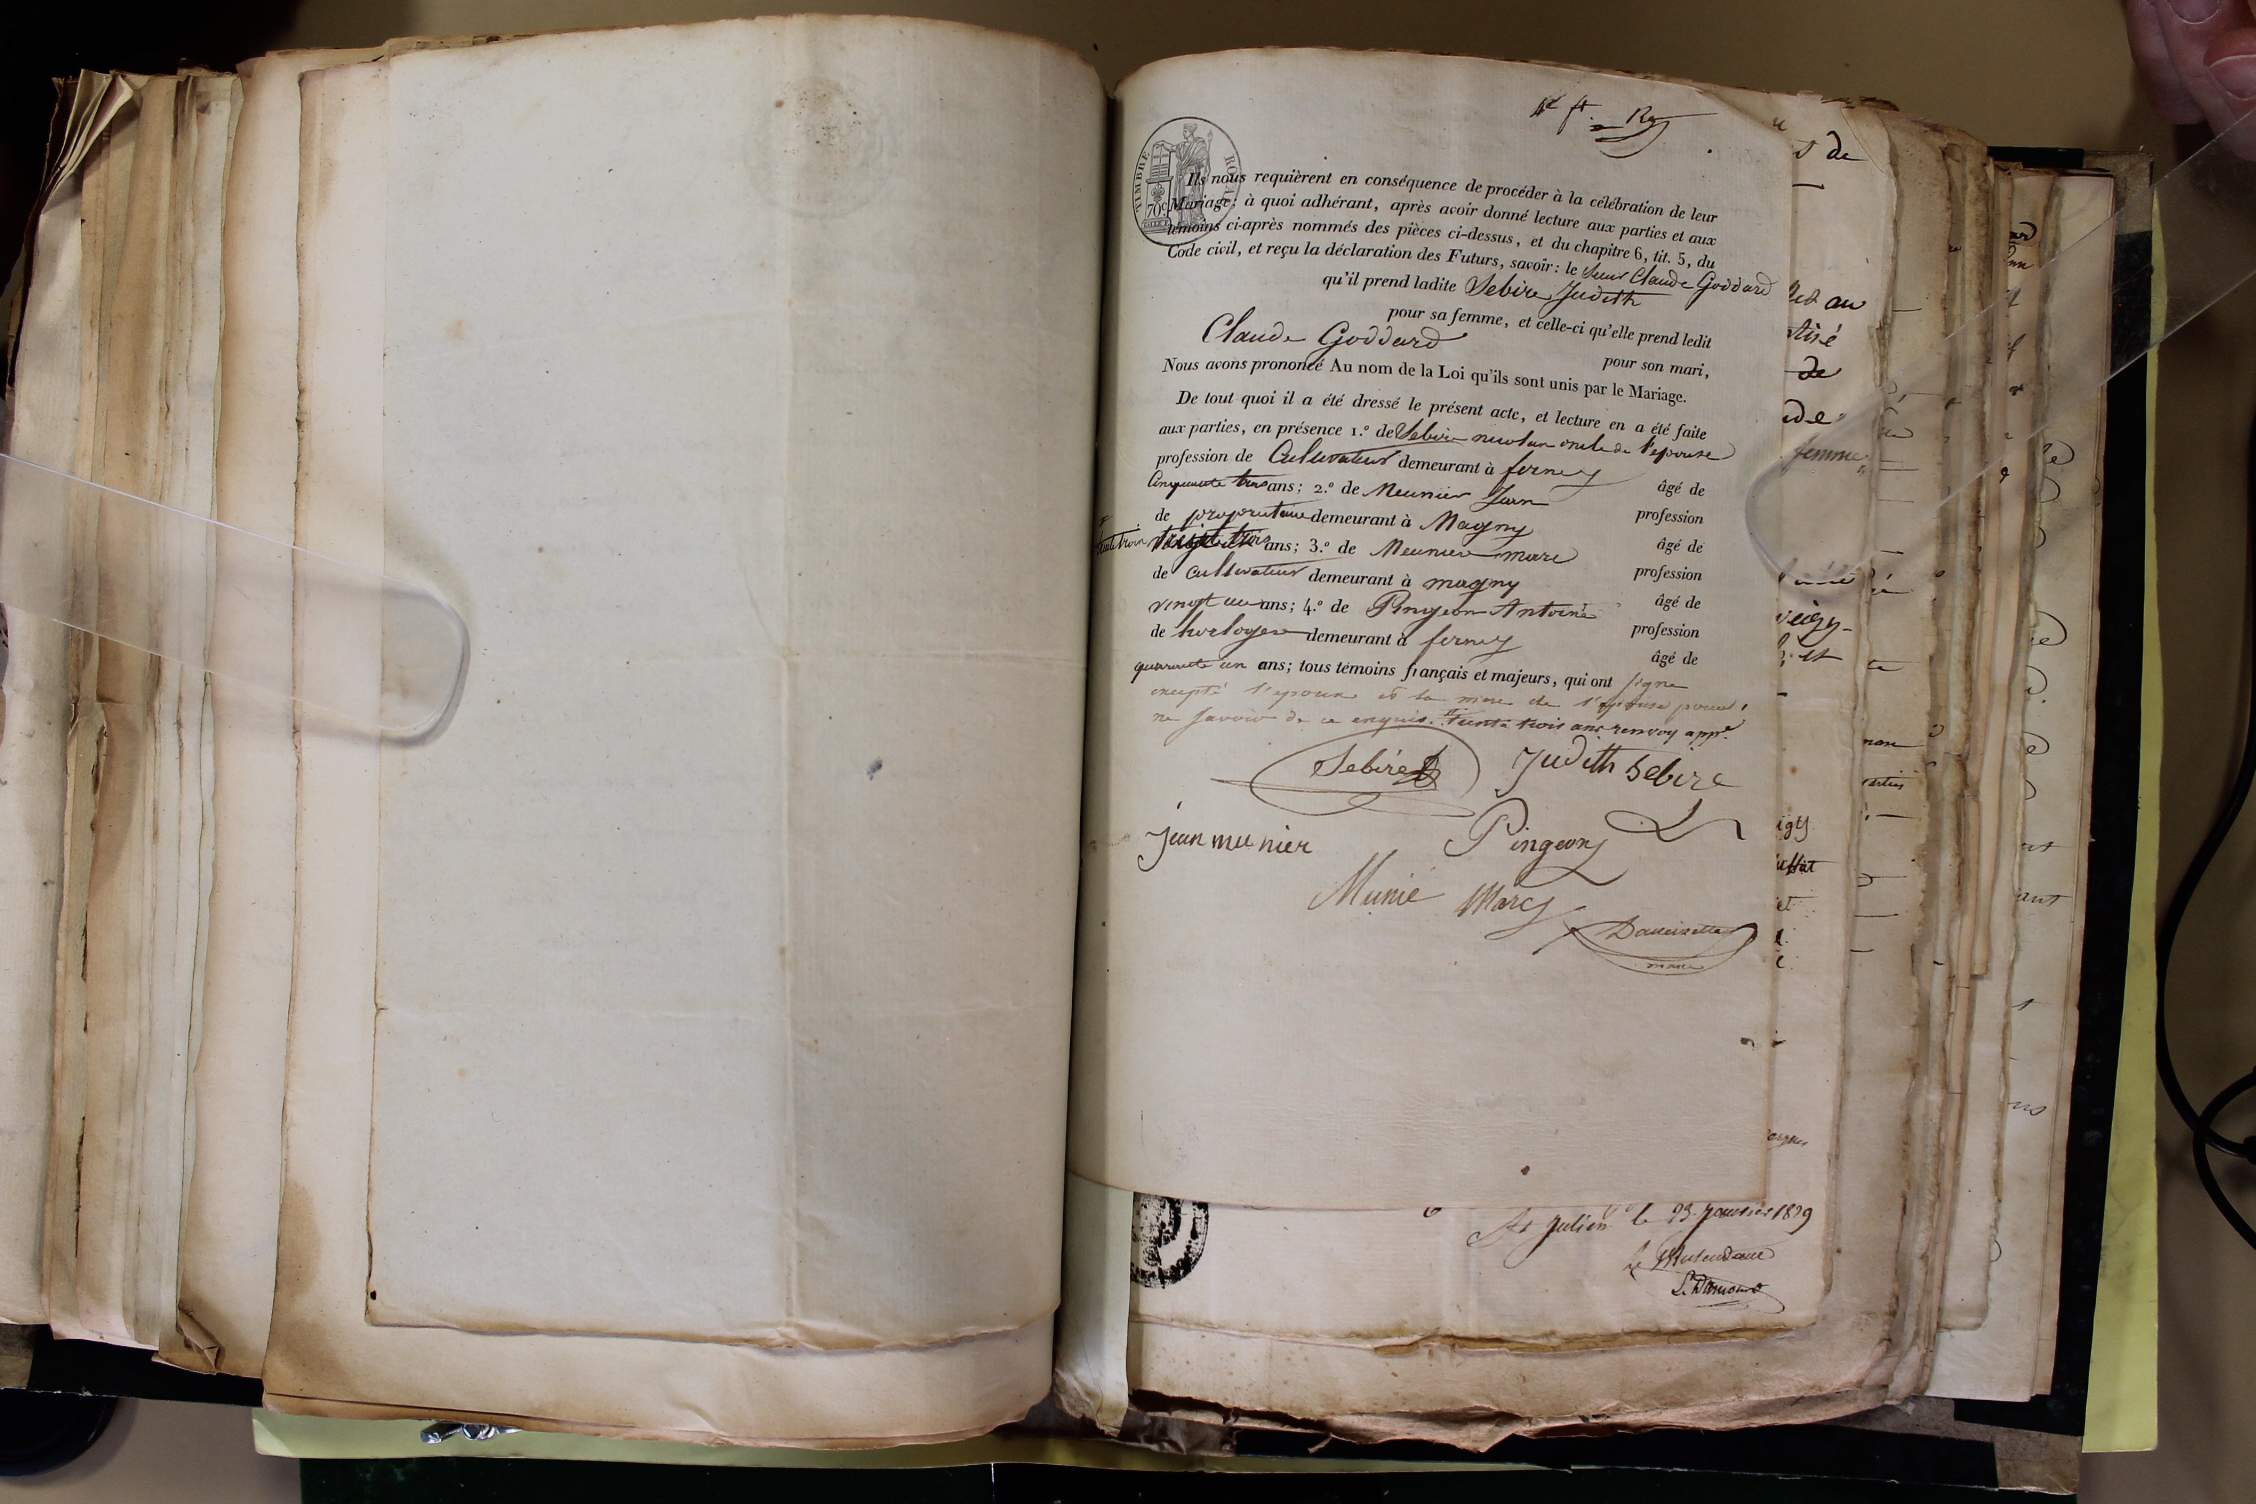 Rg
TIMBRE ROYAL
70c
Ils nous requièrent en conséquence de procéder à la célébration de leur
Mariage: à quoi adhérant, après avoir donné lecture aux parties et aux
témoins ci-après nommés des pièces ci-dessus, et du chapitre 6, tit. 5, du
Code civil, et reçu la déclaration des Futurs, savoir: le sieur Claude Goddard
qu'il prend ladite Sebire Judith
pour sa femme, et celle-ci qu'elle prend ledit
Claude Goddard
pour son mari,
Nous avons prononcé Au nom de la Loi qu'ils sont unis par le Mariage.
De tout quoi il a été dressé le présent acte, et lecture en a été faite
aux parties, en présence 1.º de Sebire oncle de l'epouse
profession de Cultivateur demeurant à ferney
âgé de
Cinquante trois ans; 2.º de Meunier Jean
profession
de proprietaire demeurant à Magny
âgé de
trente trois
ans; 3.º de Meunier marc
profession
de cultivateur demeurant à magny
âgé de
vingt un ans; 4.º de Pingeon Antoine
profession
de horloger demeurant à ferney
âgé de
quarante un ans; tous témoins français et majeurs, qui ont signé
excepté l'epoux et la mere de l'epouse pour
ne savoir de ce enquis. trente trois ans renvoy appé
Sebire
Judith Sebire
jean mu nier
Pingeon
Munie Marc
maire
St Julien le 23 Janvier 1829